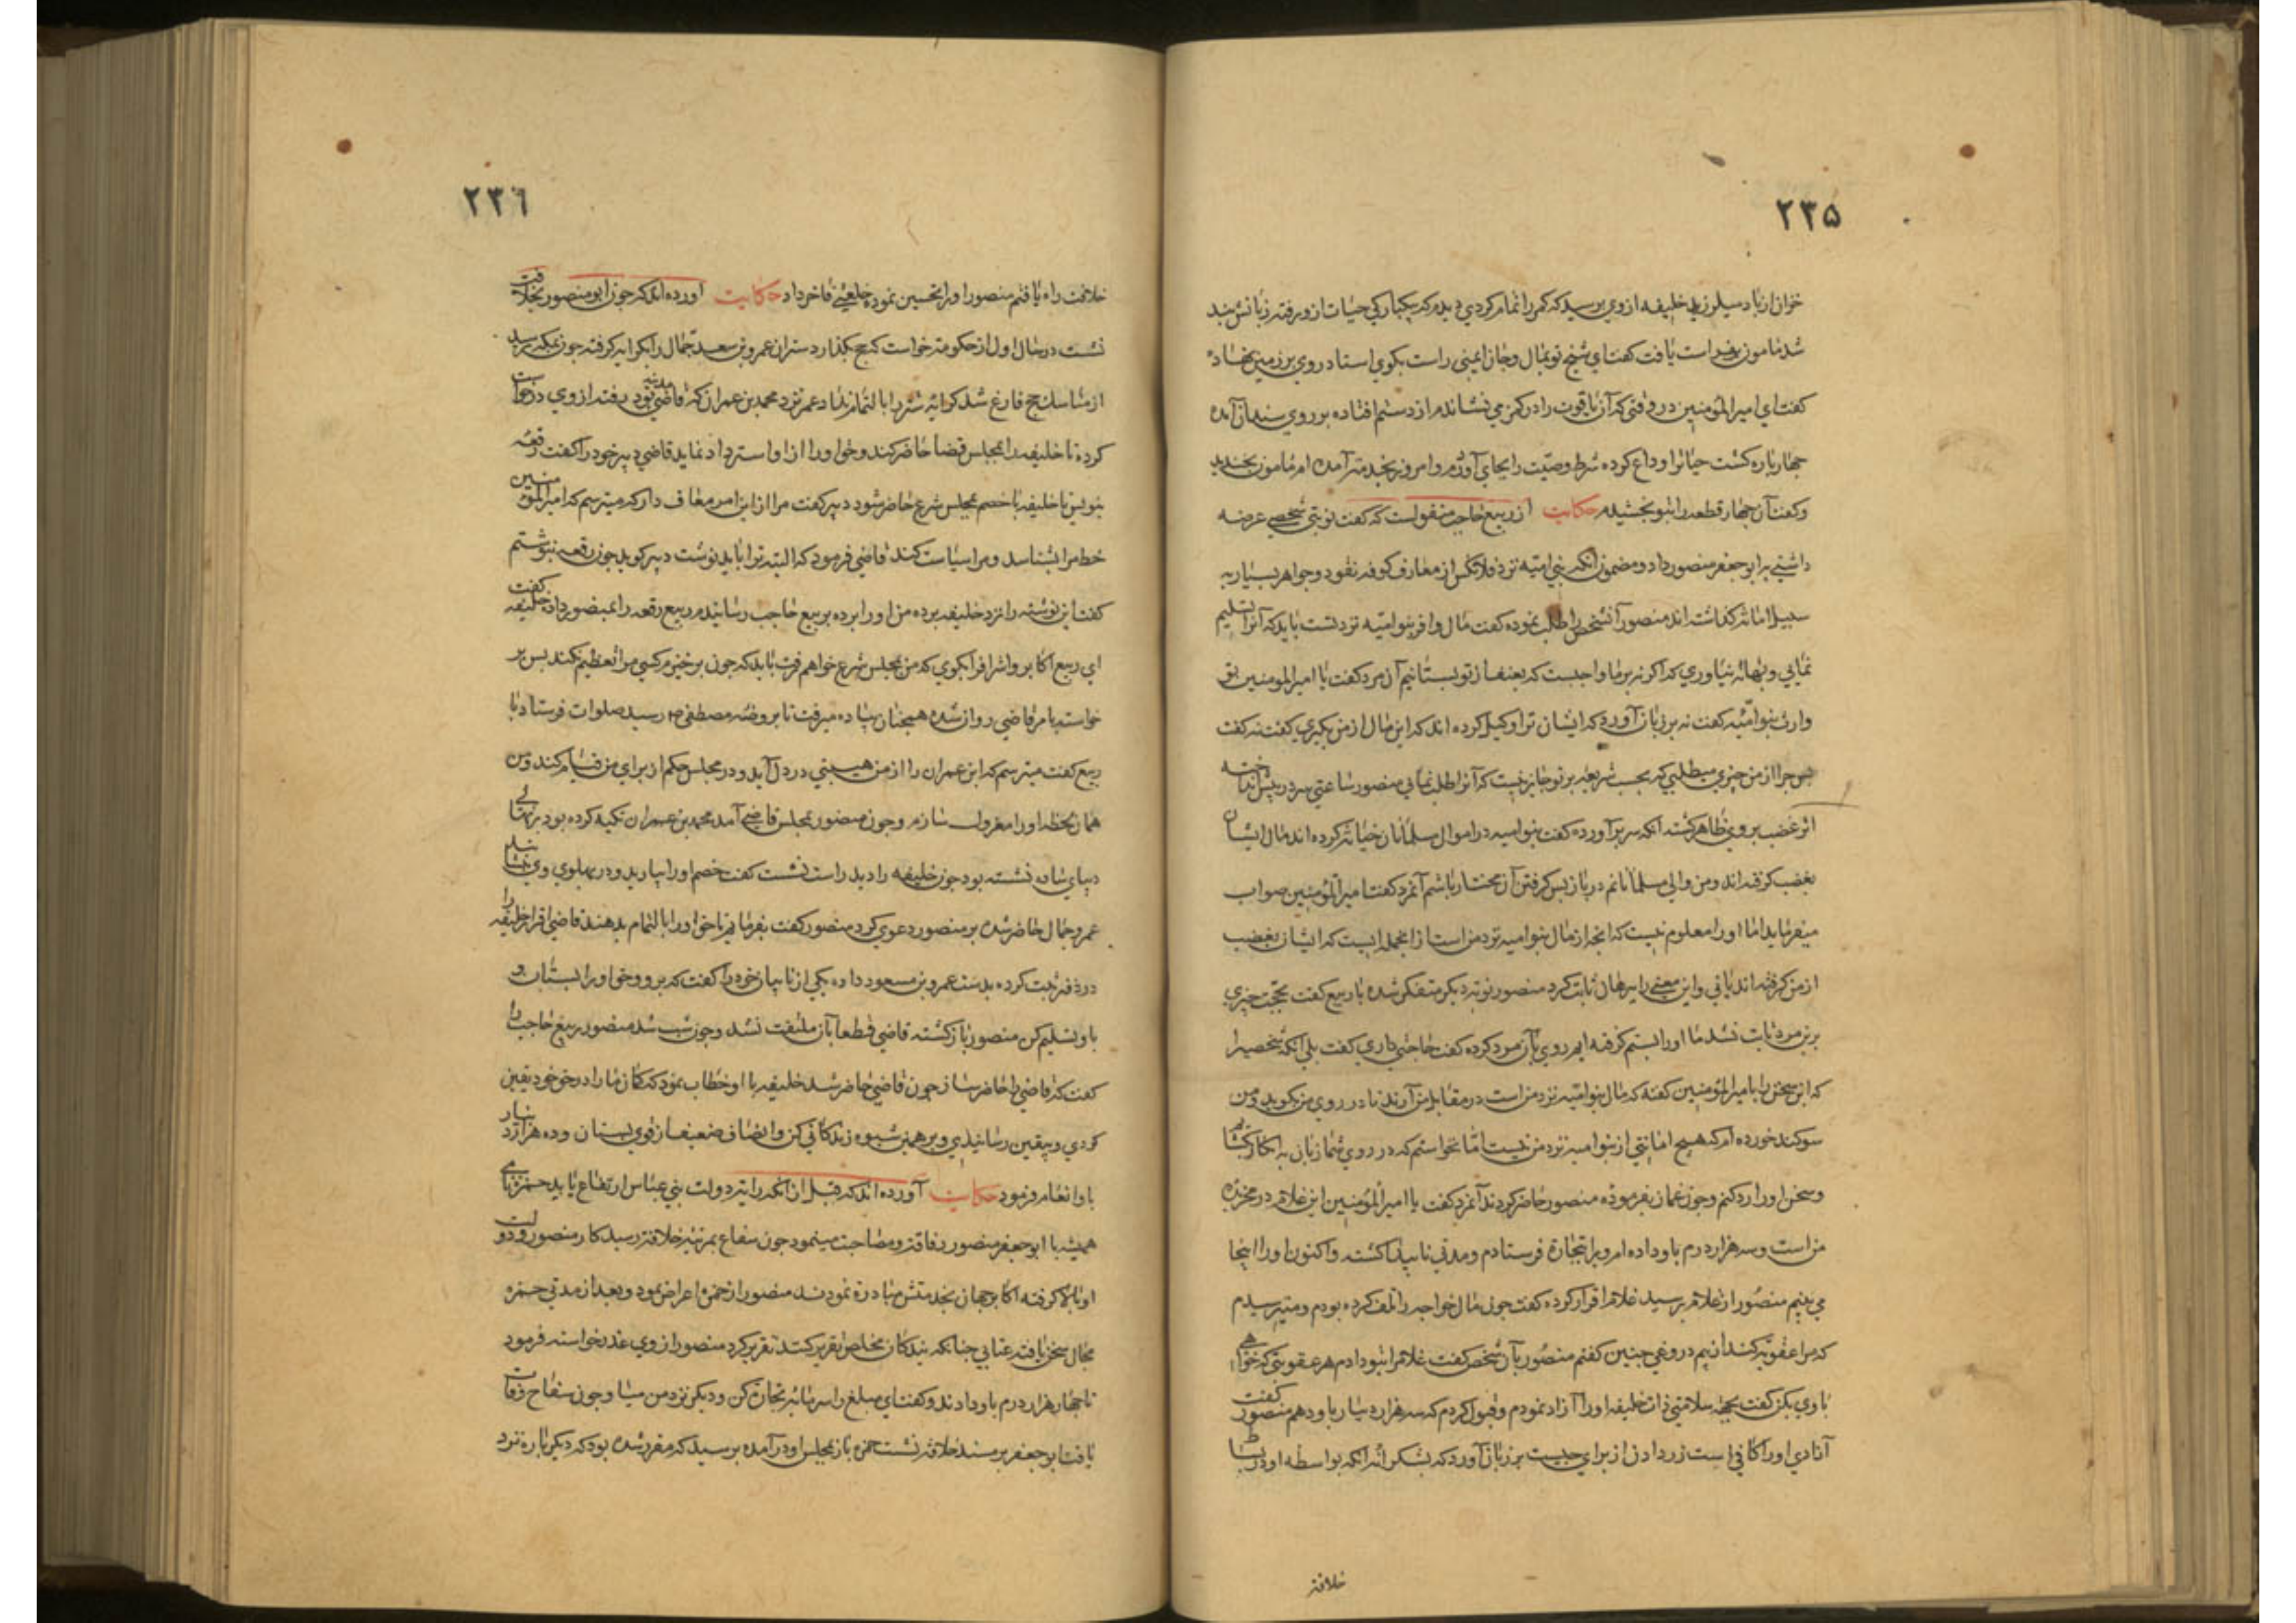 ۲۳۵
خزان از باد سیلرزید خلیفه از وی پرسید که کمر را تمام کردی دیدم که یکبارکی حیات ازو رفته زبانش بند
شد مامون بفراست یافت کفت ای شیخ تو بمال و جان ایمنی راست بکوی استاد روی بر زمین نهاده
کفت ای امیر المؤمنین در وقتی که آن یاقوت را در کمر می نشاندم از دستم افتاده بر روی سندان آمده
چهار پاره کشت حیاترا وداع کرده شرط وصیّت را بجای آوردم و امروز بخدمت آمده ام مامون بخندید
و کفت آن چهار قطعه را بتو بخشیدم حکایت از ربیع حاجب منقولست که کفت نوبتی شخصی عرضه
داشتی بر ابو جعفر منصور داد و مضمون آنکه بنی امیّه نزد فلانکس از معارف کوفه نقود و جواهر بسیار به
سبیل امانة کذاشته اند منصور آنشخص را طلب نموده کفت مال وافر بنو امیّه نزد تست باید که آنرا تسلیم
نمایی و بهانه نیاوری که اکر نه بر ما واجبست که بعنف از تو بستانیم آن مرد کفت یا امیر المومنین تو
وارث بنو امیّه کفت نه بر زبان آورد که ایشان ترا وکیل کرده اند که این مال از من بکیری کفت نه کفت
پس چرا از من چیزی میطلبی که بحسب شریعة بر تو جایز نیست که آنرا طلب نمایی منصور ساعتی سر در پیش انداخته
اثر غضب بروی ظاهر کشته آنکه سر برآورده کفت بنو امیه در اموال مسلمانان خیانة کرده اند مال ایشان
بغضب کرفته اند و من والی مسلمانانم در باز پس کرفتن آن مختار باشم آنمرد کفت امیر المؤمنین صواب
میفرماید اما اورا معلوم نیست که آنچه از مال بنو امیه نزد من است از آنجمله ایست که ایشان بغضب
از من کرفته اند یا نی و این معنی را ببرهان ثابت کرد منصور نوبة دیکر متفکر شده با ربیع کفت بحجت چیزی
برین مرد ثابت نشد ما اورا بستم کرفته ایم روی بآن مرد کرده کفت حاجتی داری کفت بلی آنکه شخصیرا
که این سخن را با امیر المؤمنین کفته که مال بنو امیّه نزد من است در مقابل من آرند تا در روی من بکوید و من
سوکند خورده ام که هیچ امانتی از بنو امیه نزد من نیست اما نخواستم که در روی شما زبان به انکار کشایم
و سخن اورا رد کنم و چون غماز بفرموده منصور حاضر کردند آنمرد کفت یا امیر المؤمنین این غلام در مخزیده
من است و سه هزار درم باو داده ام و برا بتجارة فرستادم و مدتی ناپیدا کشته و اکنون اورا اینجا
می بینم منصور از غلام پرسید غلام اقرار کرده کفت چون مال خواجه را تلف کرده بودم و میترسیدم
که مرا عقوبة کند از بیم دروغی چنین کفتم منصور بآن شخص کفت غلامرا بتو دادم هر عقوبتی که خواهی
با وی بکن کفت بجهة سلامتی ذات خلیفه اورا آزاد نمودم و قبول کردم که سه هزار دینار باو دهم منصور کفت
آزادی اورا کافی است زر دادن از برای چیست بر زبان آورد که بشکرانه آنکه بواسطه او در بساط
خلافة
۲۳۶
خلافت راه یافتم منصور اورا تحسین نموده خلعتی فاخر داد حکایت آورده اند که چون ابو منصور بخلافت
نشست در سال اول از حکومة خواست که حج بکذارد ستران عمرو بن سعد جمّال را بکرایه کرفته چون بمکه رسید
از مناسک حج فارغ شد کرایه شتر را بالتمام نداد عمر نزد محمد بن عمران که قاضی مدینه بود رفته از وی درخواست
کرده تا خلیفه را بمجلس قضا حاضر کند و حق اورا از او استرداد نماید قاضی دبیر خود را کفت رقعه
بنویس تا خلیفه با خصم بمجلس شرع حاضر شود دبیر کفت مرا از این امر معاف دار که میترسم که امیر المؤمنین
خط مرا بشناسد و مرا سیاست کند قاضی فرمود که البته ترا باید نوشت دبیر کوید چون رقعه نبوشتم
کفت این نوشته را نزد خلیفه برده من اورا برده بربیع حاجب رسانیدم ربیع رقعه را بمنصور داد خلیفه کفت
ای ربیع اکابر و اشراف را بکوی که من بمجلس شرع خواهم رفت باید که چون برخیزم کسی مرا تعظیم نکند پس بر
خواسته با مر قاضی روان شده همچنان پیاده میرفت تا بروضه مصطفی ص رسید صلوات فرستاد با
ربیع کفت میترسم که ابن عمران را از من هیبتی در دل آید و در مجلس حکم از برای من قیام کند و من
همان لحظه اورا معزول سازم و چون منصور بمجلس قاضی آمد محمد بن عمران تکیه کرده بود بر نهالی
دیبای ساده نشسته بود چون خلیفه را دید راست نشست کفت خصم اورا بیارید و در پهلوی وی بنشانید
عمرو جمال حاضر شده بر منصور دعوی کرد منصور کفت بفرمایم تا حق اورا بالتمام بدهند قاضی اقرار خلیفه را
در دفتر ثبت کرده بدست عمرو بن مسعود داده یکی از نایبان خود را کفت که برو و حق اورا بستان و
باو تسلیم کن منصور بازکشته قاضی قطعا بآن ملتفت نشد و چون شب شد منصور ربیع حاجب را
کفت که قاضی را حاضر ساز چون قاضی حاضر شد خلیفه با او خطاب نمود که کان ما را در حق خود یقین
کردی و بیقین رسانیدی و بر همین شیوه زندکانی کن و انصاف ضعیف از قوی بستان و ده هزار دینار
باو انعام فرمود حکایت آورده اند که قبل از آنکه رایة دولت بنی عباس ارتفاع یابد حمزه
همیشه با ابو جعفر منصور رفاقة و مصاحبت مینمود چون سفاح بمرتبه خلافة رسید کار منصور و دولت
او بالا کرفته اکابر جهان بخدمتش مبادرة نمودند منصور از حمزه اعراض نمود و بعد از مدتی حمزه
مجال سخن یافته عتابی چنانکه بندکان مخلص تقریر کنند تقریر کرد منصور از وی عذر خواسته فرمود
تا چهار هزار درم باو دادند و کفت ای مبلغ را سرمایه تجارة کن و دیکر نزد من میا و چون سفاح وفات
یافت ابو جعفر بر مسند خلافة نشست حمزه باز بمجلس او درآمده پرسید که مقرر شده بود که دیکر باره نزد